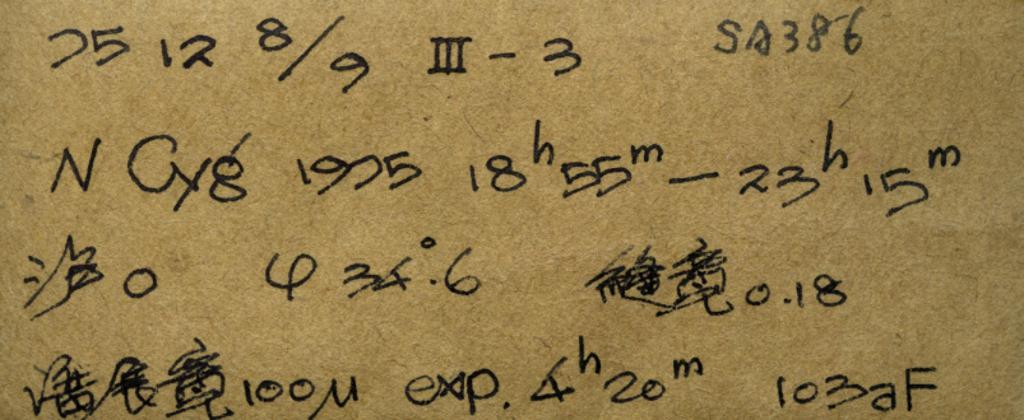 75 12 8/9 III - 3 SA386
N Cyg 1975 18ʰ55ᵐ — 23ʰ15ᵐ
沪0 φ 34°.6 縫寬0.18
谱展寬100μ exp. 4ʰ20ᵐ 103aF